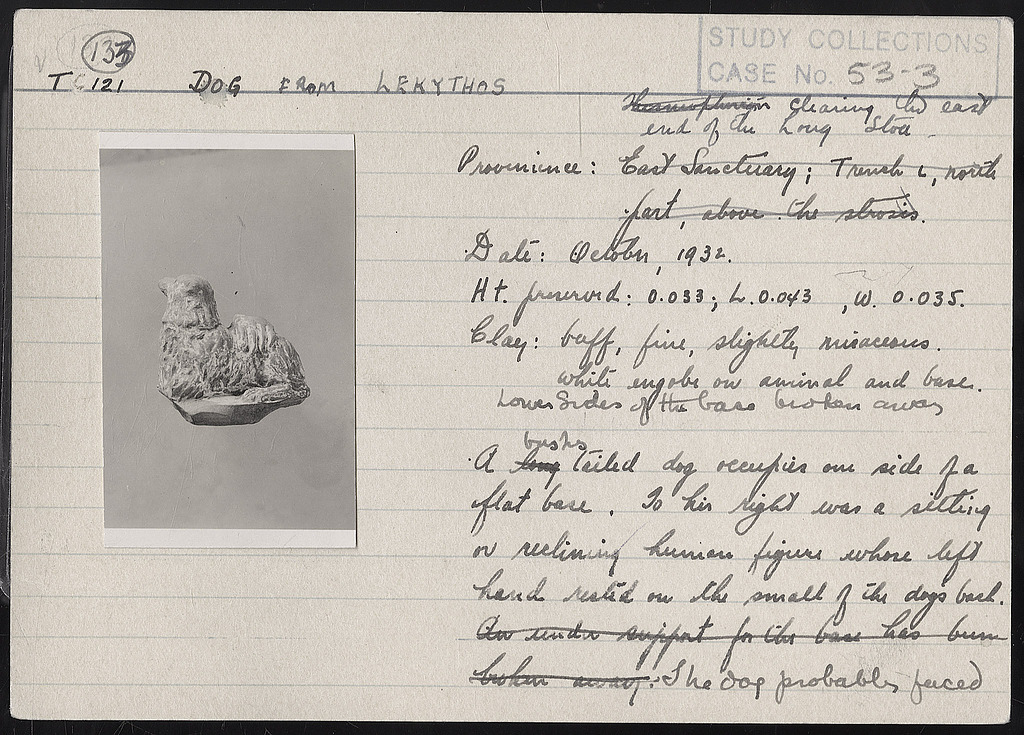 133
STUDY COLLECTIONS
CASE No. 53-3
TC 121 DOG FROM LEKYTHOS
Thesmophorion clearing the east
end of the Long Stoa
Provenience: East Sanctuary; Trench L, north
part, above the strosis.
Date: October, 1932.
Ht. preserved: 0.033; L. 0.043, W. 0.035.
Clay: buff, fine, slightly micaceous.
White engobe on animal and base.
Lower Sides of the base broken away
bushy
A long tailed dog occupies one side of a
flat base. To his right was a sitting
or reclining human figure whose left
hand rested on the small of the dog's back.
An under support for the base has been
broken away. The dog probably faced